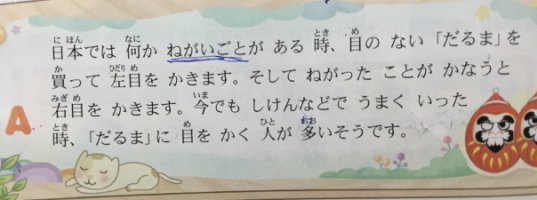 日本では 何か ねがいごとが ある 時、目の ない「だるま」を
買って 左目を かきます。そして ねがった ことが かなうと
右目を かきます。今でも しけんなどで うまく いった
時、「だるま」に 目を かく 人が 多いそうです。
A